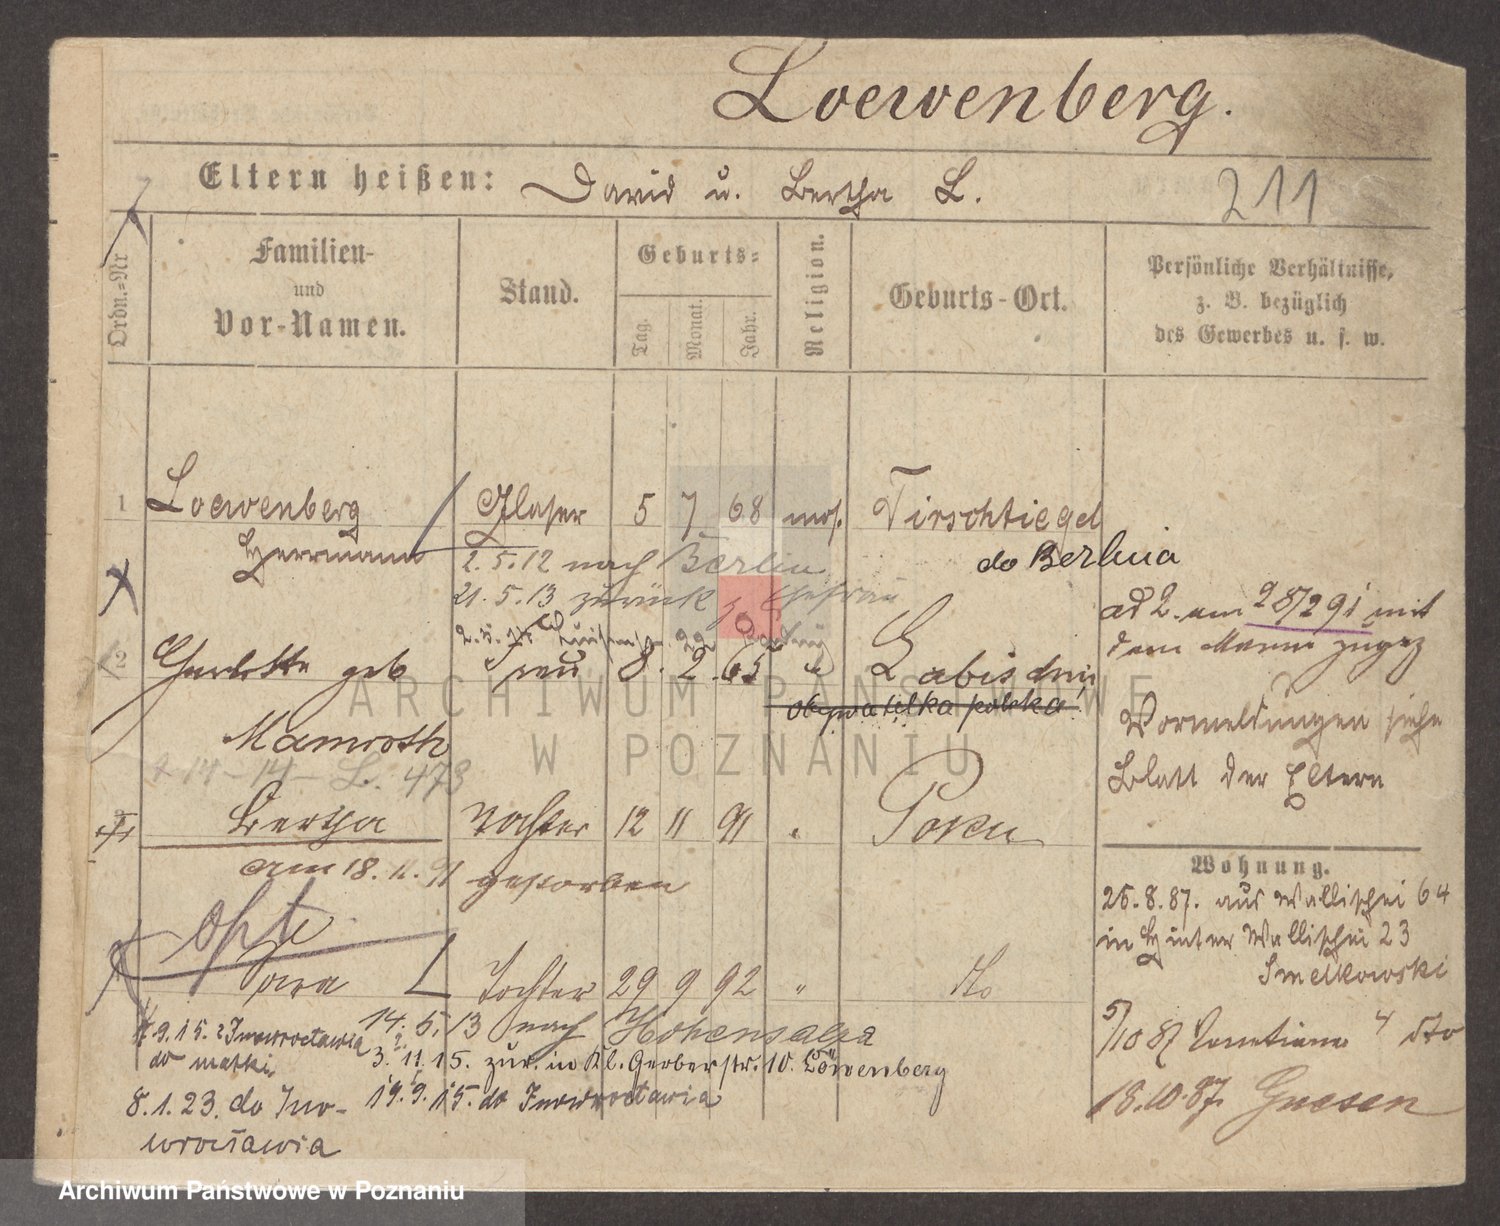 Loewenberg.
Eltern heißen: David u. Bertha L.
211
Ordn.=Nr
Familien-
und
Vor-Namen.
Stand.
Geburts=
Tag.
Monat.
Jahr.
Religion.
Geburts-Ort.
Persönliche Verhältnisse,
z. B. bezüglich
des Gewerbes u. s. w.
1 Loewenberg Glaser 5 7 68 mos. Tirschtiegel
Herrmann
2.5.12 nach Berlin
do Berlina
21.5.13 zurück Ehefrau
ad 2. am 28/2 91 mit
dem Manne zugez
2 Charlotte geb Frau 8. 2. 65 " Labischin
obywatelka polska
Mamroth
Vormeldungen siehe
Blatt der Eltern
14-14- L. 473
Bertha Tochter 12 11 91 " Posen
am 18.11.91 gestorben
Wohnung.
26.8.87. aus Wallischei 64
in Hinter Wallischei 23
Smelkowski
Opti
Tochter 29 9 92 " dto
14.5.13 nach Hohensalza
9.15. Inowrocławia
do matki
3.11.15. zur. in Kl. Gerberstr. 10. Löwenberg
5/10 87 4 dto
8.1.23. do Ino-
wrocławia
19.9.15. do Inowrocławia
18.10.87. Gnesen
ARCHIWUM PAŃSTWOWE
W POZNANIU
Archiwum Państwowe w Poznaniu